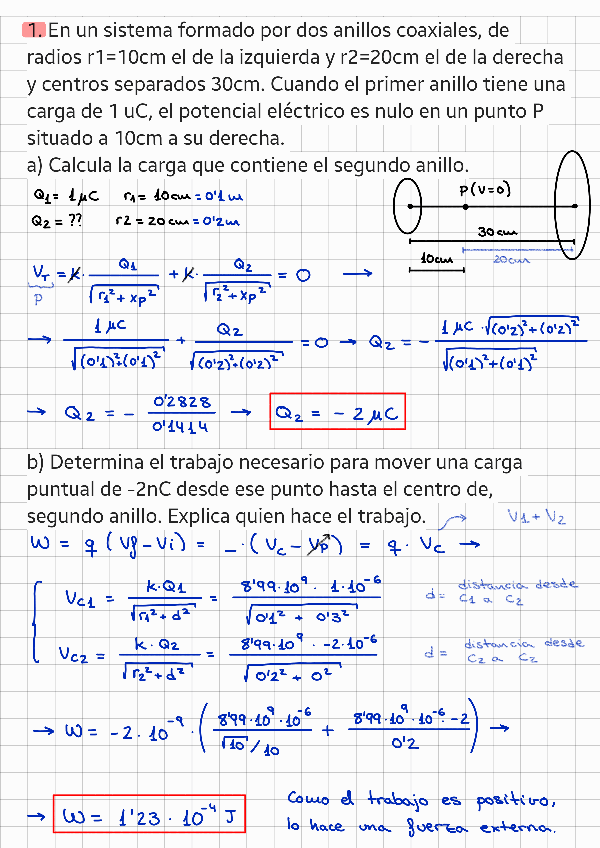 1. En un sistema formado por dos anillos coaxiales, de
radios r1=10cm el de la izquierda y r2=20cm el de la derecha
y centros separados 30cm. Cuando el primer anillo tiene una
carga de 1 uC, el potencial eléctrico es nulo en un punto P
situado a 10cm a su derecha.
a) Calcula la carga que contiene el segundo anillo.
Q1 = 1 μC r1 = 10cm = 0'1m
Q2 = ?? r2 = 20cm = 0'2m
P(V=0)
30cm
10cm 20cm
V_T = k · Q1 / √(r1² + xp²) + k · Q2 / √(r2² + xp²) = 0 →
P
→ 1 μC / √((0'1)²+(0'1)²) + Q2 / √((0'2)²+(0'2)²) = 0 → Q2 = − 1 μC · √((0'2)²+(0'2)²) / √((0'1)²+(0'1)²)
→ Q2 = − 0'2828 / 0'1414 → Q2 = − 2 μC
b) Determina el trabajo necesario para mover una carga
puntual de -2nC desde ese punto hasta el centro de,
segundo anillo. Explica quien hace el trabajo. V1 + V2
W = q (Vf − Vi) = − · (Vc − Vp) = q · Vc →
Vc1 = k·Q1 / √(r1² + d²) = 8'99·10⁹ · 1·10⁻⁶ / √(0'1² + 0'3²) d = distancia desde C1 a C2
Vc2 = k·Q2 / √(r2² + d²) = 8'99·10⁹ · −2·10⁻⁶ / √(0'2² + 0²) d = distancia desde C2 a C2
→ W = −2 · 10⁻⁹ · (8'99·10⁹·10⁻⁶ / √10 / 10 + 8'99·10⁹·10⁻⁶·−2 / 0'2) →
→ W = 1'23 · 10⁻⁴ J
Como el trabajo es positivo,
lo hace una fuerza externa.